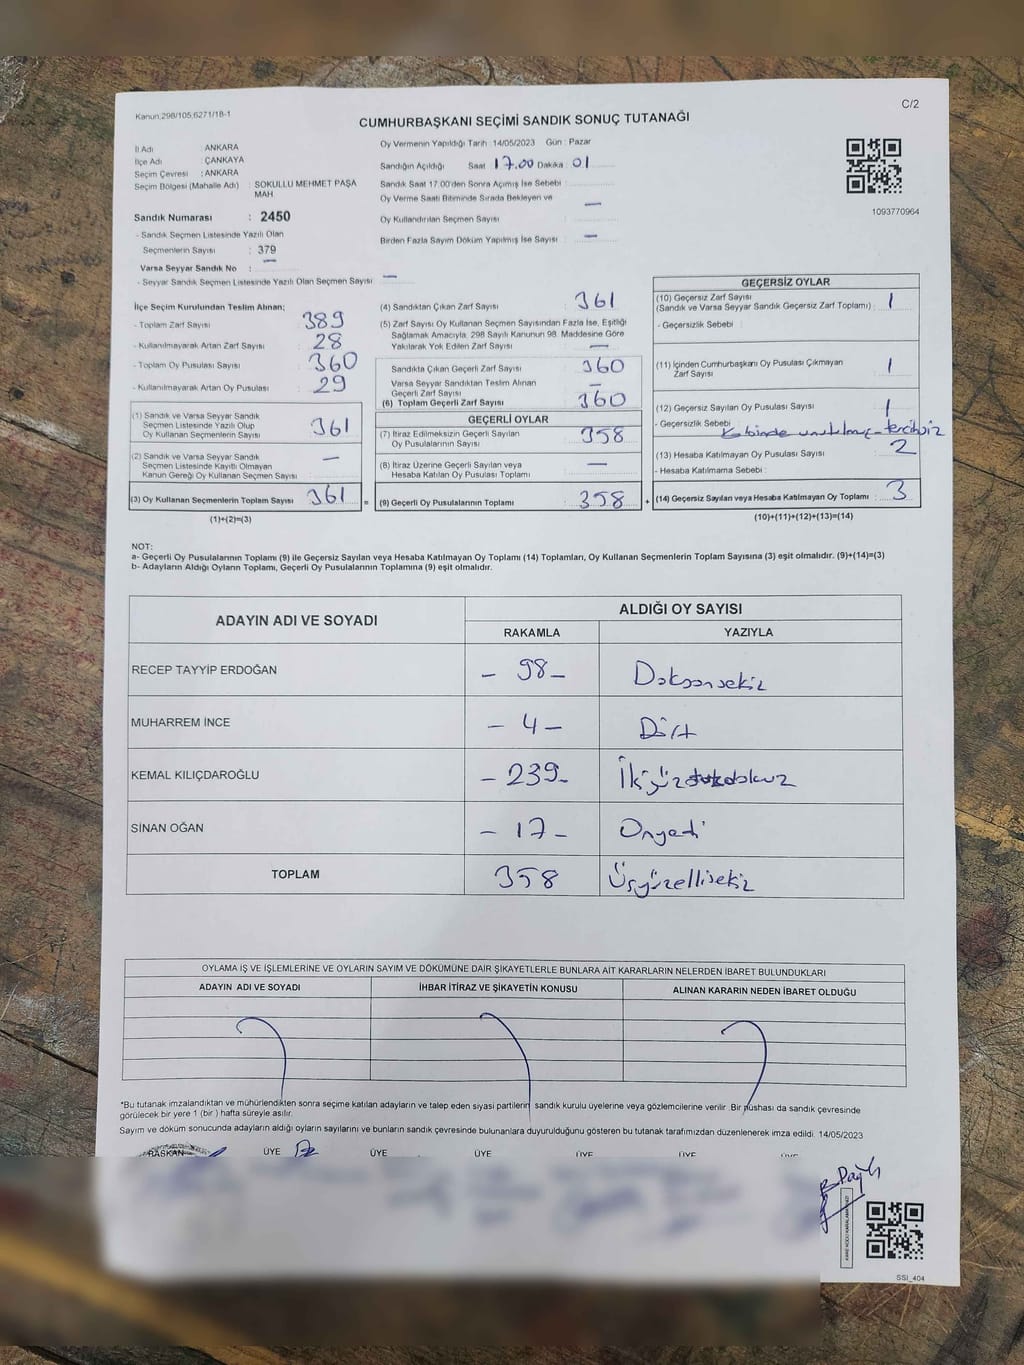 Kanun,298/105,6271/18-1
C/2
CUMHURBAŞKANI SEÇİMİ SANDIK SONUÇ TUTANAĞI
İl Adı : ANKARA
İlçe Adı : ÇANKAYA
Seçim Çevresi : ANKARA
Seçim Bölgesi (Mahalle Adı) : SOKULLU MEHMET PAŞA
MAH
Sandık Numarası : 2450
- Sandık Seçmen Listesinde Yazılı Olan
Seçmenlerin Sayısı : 379
Varsa Seyyar Sandık No : —
- Seyyar Sandık Seçmen Listesinde Yazılı Olan Seçmen Sayısı —
Oy Vermenin Yapıldığı Tarih : 14/05/2023 Gün : Pazar
Sandığın Açıldığı Saat 17.00 Dakika : 01
Sandık Saat 17.00'den Sonra Açımış İse Sebebi :
Oy Verme Saati Bitiminde Sırada Bekleyen ve —
Oy Kullandırılan Seçmen Sayısı
Birden Fazla Sayım Döküm Yapılmış İse Sayısı : —
1093770964
İlçe Seçim Kurulundan Teslim Alınan;
- Toplam Zarf Sayısı 389
- Kullanılmayarak Artan Zarf Sayısı : 28
- Toplam Oy Pusulası Sayısı : 360
- Kullanılmayarak Artan Oy Pusulası : 29
(1) Sandık ve Varsa Seyyar Sandık
Seçmen Listesinde Yazılı Olup
Oy Kullanan Seçmenlerin Sayısı : 361
(2) Sandık ve Varsa Seyyar Sandık
Seçmen Listesinde Kayıtlı Olmayan
Kanun Gereği Oy Kullanan Seçmen Sayısı : —
(3) Oy Kullanan Seçmenlerin Toplam Sayısı : 361 =
(1)+(2)=(3)
(4) Sandıktan Çıkan Zarf Sayısı : 361
(5) Zarf Sayısı Oy Kullanan Seçmen Sayısından Fazla İse, Eşitliği
Sağlamak Amacıyla, 298 Sayılı Kanunun 98. Maddesine Göre
Yakılarak Yok Edilen Zarf Sayısı : —
Sandıkta Çıkan Geçerli Zarf Sayısı : 360
Varsa Seyyar Sandıktan Teslim Alınan
Geçerli Zarf Sayısı : —
(6) Toplam Geçerli Zarf Sayısı : 360
GEÇERLİ OYLAR
(7) İtiraz Edilmeksizin Geçerli Sayılan
Oy Pusulalarının Sayısı : 358
(8) İtiraz Üzerine Geçerli Sayılan veya
Hesaba Katılan Oy Pusulası Toplamı : —
(9) Geçerli Oy Pusulalarının Toplamı : 358 +
GEÇERSİZ OYLAR
(10) Geçersiz Zarf Sayısı
(Sandık ve Varsa Seyyar Sandık Geçersiz Zarf Toplamı) : 1
- Geçersizlik Sebebi :
(11) İçinden Cumhurbaşkanı Oy Pusulası Çıkmayan
Zarf Sayısı : 1
(12) Geçersiz Sayılan Oy Pusulası Sayısı : 1
- Geçersizlik Sebebi : Kabinde unutulmuş - tercihsiz
(13) Hesaba Katılmayan Oy Pusulası Sayısı : 2
- Hesaba Katılmama Sebebi :
(14) Geçersiz Sayılan veya Hesaba Katılmayan Oy Toplamı : 3
(10)+(11)+(12)+(13)=(14)
NOT:
a- Geçerli Oy Pusulalarının Toplamı (9) ile Geçersiz Sayılan veya Hesaba Katılmayan Oy Toplamı (14) Toplamları, Oy Kullanan Seçmenlerin Toplam Sayısına (3) eşit olmalıdır. (9)+(14)=(3)
b- Adayların Aldığı Oyların Toplamı, Geçerli Oy Pusulalarının Toplamına (9) eşit olmalıdır.
ADAYIN ADI VE SOYADI
ALDIĞI OY SAYISI
RAKAMLA YAZIYLA
RECEP TAYYİP ERDOĞAN - 98 - Doksansekiz
MUHARREM İNCE - 4 - Dört
KEMAL KILIÇDAROĞLU - 239 - İkiyüzotuzdokuz
SİNAN OĞAN - 17 - Onyedi
TOPLAM 358 Üçyüzellisekiz
OYLAMA İŞ VE İŞLEMLERİNE VE OYLARIN SAYIM VE DÖKÜMÜNE DAİR ŞİKAYETLERLE BUNLARA AİT KARARLARIN NELERDEN İBARET BULUNDUKLARI
ADAYIN ADI VE SOYADI İHBAR İTİRAZ VE ŞİKAYETİN KONUSU ALINAN KARARIN NEDEN İBARET OLDUĞU
*Bu tutanak imzalandıktan ve mühürlendikten sonra seçime katılan adayların ve talep eden siyasi partilerin sandık kurulu üyelerine veya gözlemcilerine verilir. Bir nüshası da sandık çevresinde
görülecek bir yere 1 (bir ) hafta süreyle asılır.
Sayım ve döküm sonucunda adayların aldığı oyların sayılarını ve bunların sandık çevresinde bulunanlara duyurulduğunu gösteren bu tutanak tarafımızdan düzenlenerek imza edildi. 14/05/2023
BAŞKAN ÜYE ÜYE ÜYE ÜYE ÜYE ÜYE
SSI_404